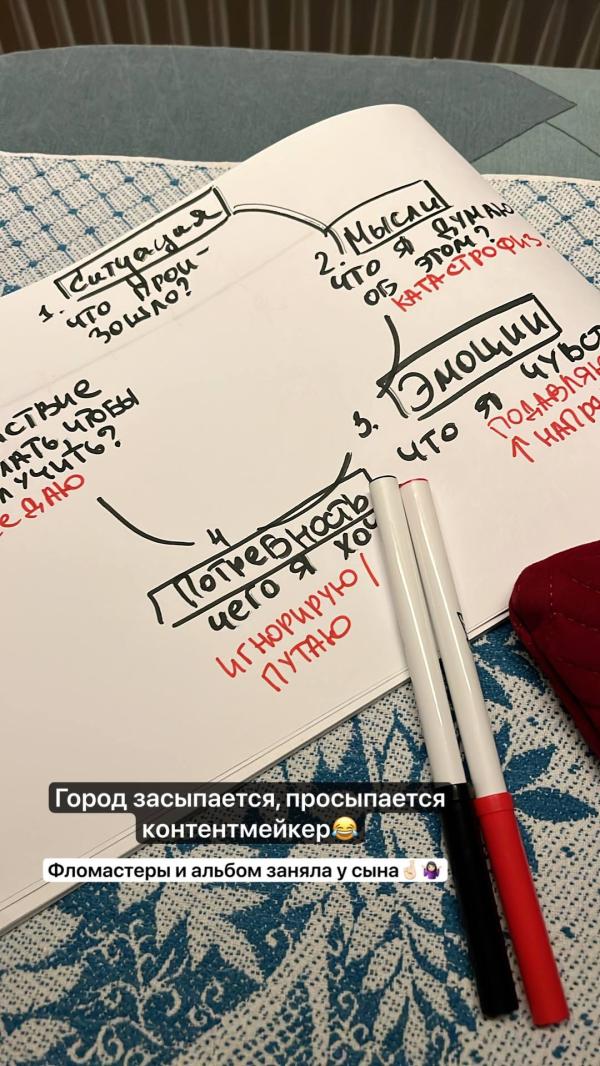 1. Ситуация
что прои-
зошло?
2. Мысли
что я думаю
об этом?
катастрофиз.
3. Эмоции
что я чувст
подавляю
↑ напра
4
Потребность
чего я хо
игнорирую/
путаю
ствие
лать, чтобы
лучить?
едаю
Город засыпается, просыпается
контентмейкер😂
Фломастеры и альбом заняла у сына☝🏻🤷🏻‍♀️